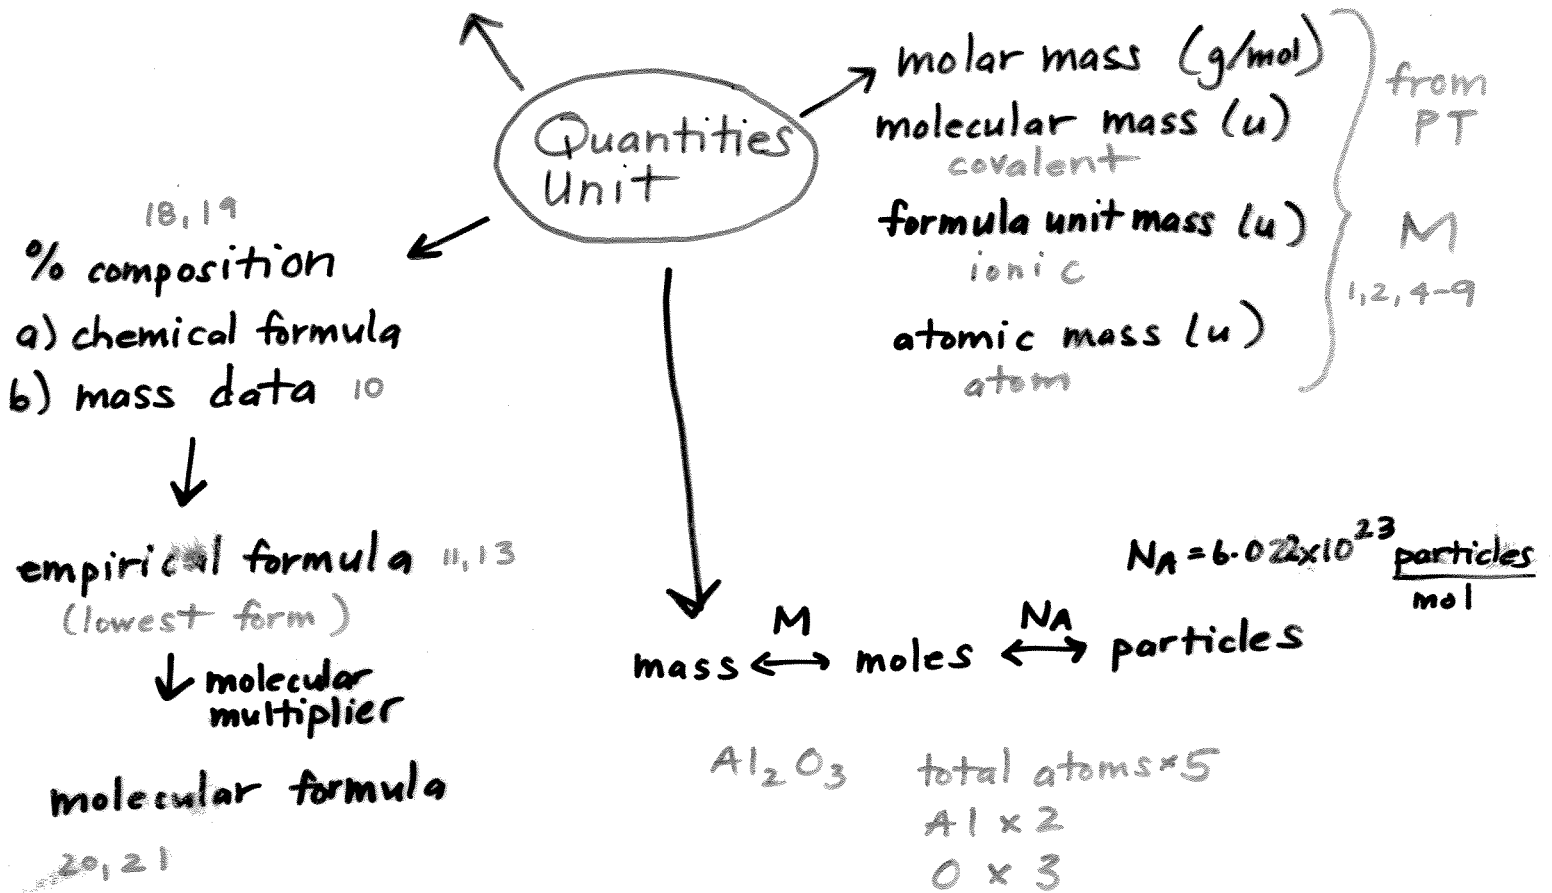 Quantities
Unit
molar mass (g/mol)
molecular mass (u)
covalent
formula unit mass (u)
ionic
atomic mass (u)
atom
from
PT
M
1,2,4-9
18,19
% composition
a) chemical formula
b) mass data 10
empirical formula 11,13
(lowest form)
molecular
multiplier
molecular formula
20,21
NA = 6.022x10^23 particles
mol
M
NA
mass ↔ moles ↔ particles
Al2O3 total atoms × 5
Al x 2
O x 3